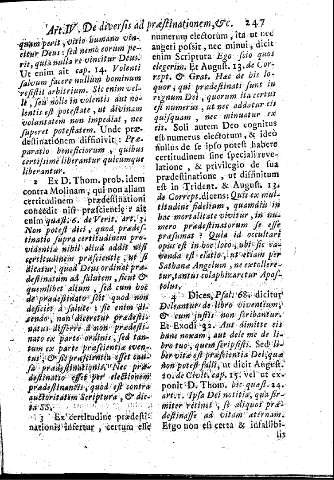 Art. IV. De diversis ad prædestinationem, &c. 247
quam parit, vitio humano vin-
citur Deus: sed nemo eorum pe-
rit, quia nulla re vincitur Deus.
Ut enim ait cap. 14. Volenti
salvum facere nullum hominum
resistit arbitrium. Sic enim vel-
le, seu nolle in volentis aut no-
lentis est potestate, ut divinam
voluntatem non impediat, nec
superet potestatem. Unde præ-
destinationem diffinivit: Præ-
paratio beneficiorum, quibus
certissime liberantur quicumque
liberantur.
2 Ex D. Thom. prob. idem
contra Molinam, qui non aliam
certitudinem prædestinationi
concedit nisi præscientiæ: ait
enim quæst. 6. de Verit. art. 3.
Non potest dici, quod prædes-
tinatio supra certitudinem pro-
videntiæ nihil aliud addit nisi
certitudinem præscientiæ, ut si
dicatur, quod Deus ordinat præ-
destinatum ad salutem, sicut &
quemlibet alium, sed cum hoc
de prædestinato scit quod non
deficiet à salute: sic enim di-
cendo, non diceretur prædesti-
natus differre à non prædesti-
nato ex parte ordinis, sed tan-
tum ex parte præscientiæ even-
tus; & sic præscientia esset cau-
sa prædestinationis. Nec præ-
destinatio esset per electionem
prædestinantis, quod est contra
auctoritatem Scripturæ, & dic-
ta SS.
3 Ex certitudine prædesti-
nationis infertur, certum esse
numerum electorum, ita ut nec
augeri possit, nec minui, dicit
enim Scriptura Ego scio quos
elegerim. Et August. 13. de Cor-
rept. & Grat. Hæc de his lo-
quor, qui prædestinati sunt in
regnum Dei, quorum ita certus
est numerus, ut nec addatur eis
quisquam, nec minuatur ex
eis. Soli autem Deo cognitus
est numerus electorum, & ideo
nullus de se ipso potest habere
certitudinem sine speciali reve-
latione, & privilegio de sua
prædestinatione, ut diffinitum
est in Trident. & August. 13.
de Correpr. dicens: Quis ex mul-
titudine fidelium, quamdiu in
hac mortalitate vivitur, in nu-
mero prædestinatorum se esse
præsumat? Quia id occultari
opus est in hoc loco, ubi sic ca-
venda est elatio, ut etiam per
Sathanæ Angelum, ne extollere-
tur, tantus colaphizaretur Apos-
tolus.
4 Dices, Psal. 68. dicitur
Deleantur de libro viventium,
& cum justis non scribantur.
Et Exodi 32. Aut dimitte eis
hanc noxam, aut dele me de li-
bro tuo, quem scripsisti. Sed li-
ber vitæ est præscientia Dei, quæ
non potest falli, ut dicit August.
20. de Civit. cap. 15. vel ut ex-
ponit D. Thom. hic quæst. 24.
art. 1. Ipsa Dei notitia, qua fir-
miter retinet, se aliquos præ-
destinasse ad vitam æternam.
Ergo non est certa & infallibi-
lis